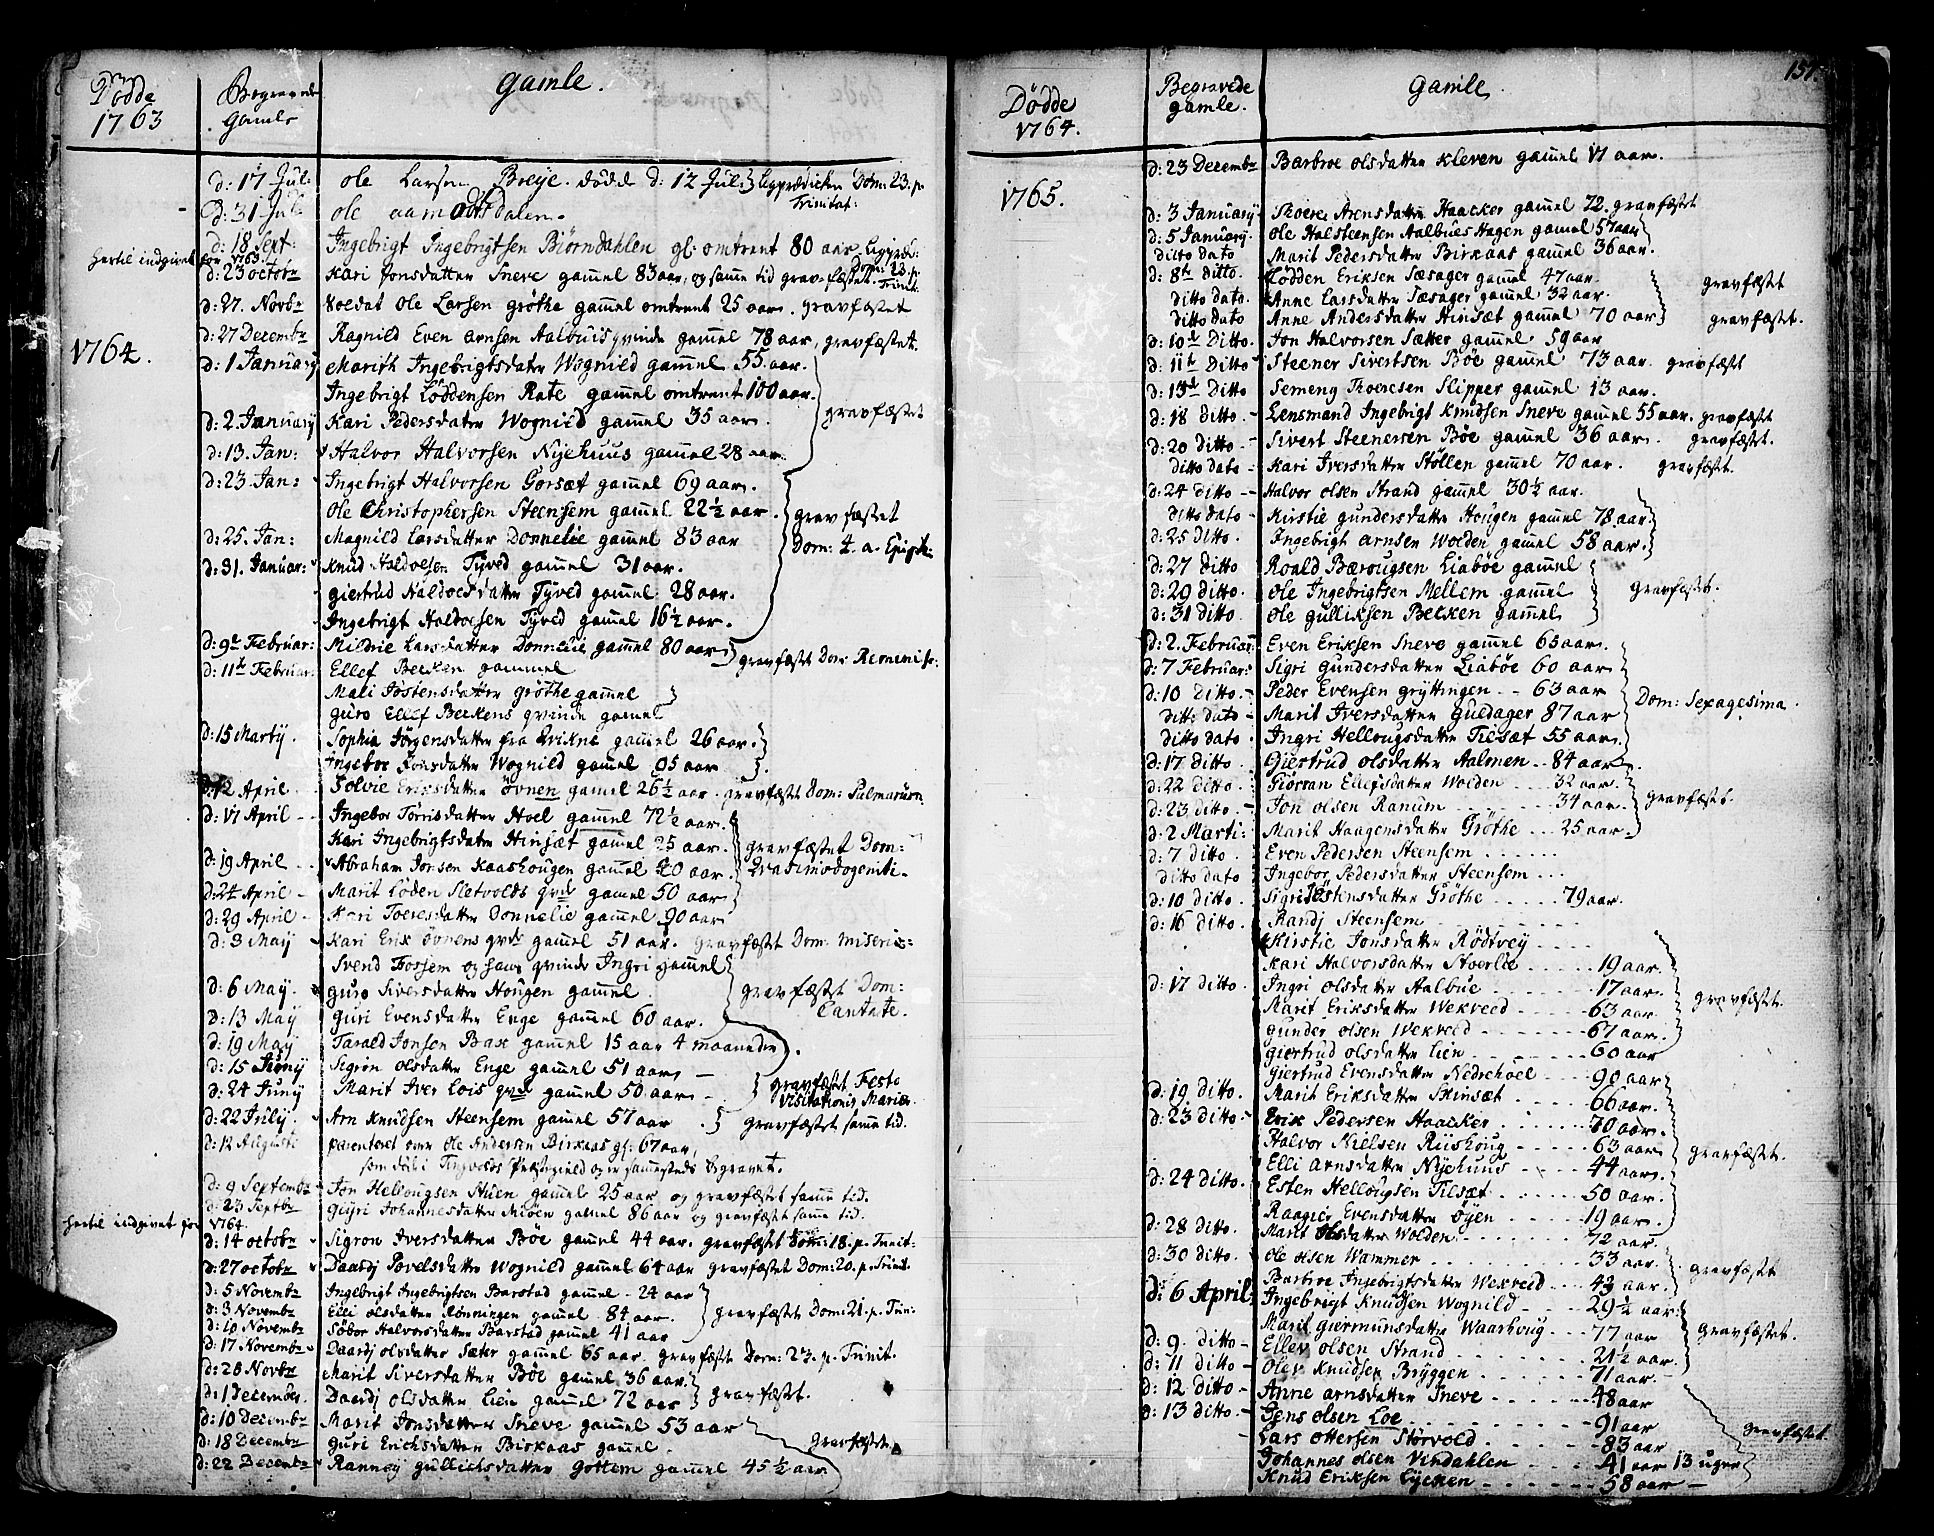 Dødde
1763
Begravede
Gamle
Gamle.
d: 17 Jul: ole Larsen Breije. dødde d: 12 Jul: } Ligprædicken Dom: 23. p.
Trinitat:
d: 31 Jul: ole aamodsdalen.
d: 18 Sept: Ingebrigt Ingebrigtsen Biørndahlen gl: omtrent 80 aar.
hertil indgivet for 1763.
d: 23 octobr Kari Jonsdatter Sneve gammel 83 aar, og samme tid gravfæstet. Dom: 23. p. Trinit.
d: 27. Novbr Soldat Ole Larsen Grøthe gammel omtrent 25 aar. gravfæstet
d: 27 Decembr Ragnild Even Arnsen Aalbuis qvinde gammel 78 aar, gravfæstet.
1764.
d: 1 January Marith Ingebrigtsdatter Wognild gammel 55 aar.
Ingebrigt Løddensen Rate gammel omtrent 100 aar.
d: 2. January Kari Pedersdatter Wognild gammel 35 aar. gravfæstet
d: 13. Jan: Halvor Halvorsen Nyehuus gammel 28 aar.
d: 23 Jan: Ingebrigt Halvorsen Gorsæt gammel 69 aar.
Ole Christophersen Steensem gammel 22½ aar. gravfæstet
d: 25. Jan: Magnild Larsdatter Donnelie gammel 83 aar Dom: 4. a. Epiph:
d: 31. Januar: Knud Haldoesen Tyved gammel 31 aar.
giertrud Haldoesdatter Tyved gammel 28 aar.
Ingebrigt Haldoesen Tyved gammel 16½ aar.
d: 9de Februar: Mildrie Larsdatter Donnelie gammel 80 aar gravfæstet Dom: Reminisc:
d: 11te Februar: Ellef Becken gammel
Mali Jøstensdatter Grøthe gammel
guro Ellef Beckens qvinde gammel
d: 15 Martij. Sophia Jørgensdatter fra Qvikne gammel 26 aar.
Ingebor Jonsdatter Wognild gammel 95 aar
d: 12 April Solvie Eriksdatter Øvnen gamel 26½ aar. gravfæstet Dom: Palmarum
d: 17 April Ingebor Torrisdatter Hoel gammel 72½ aar.
Kari Ingebrigtsdatter Hinsæt gamel 25 aar. gravfæstet Dom:
d: 19 April Abraham Jonsen Kaashougen gammel 20 aar. Qvasimodogeniti.
d: 24 April Marit Løden Sletvolds qvde gamel 50 aar
d: 29 April Kari Toeresdatter Donnelie gammel 90 aar
d: 3 May Kari Erik Øvnens qvde gammel 51 aar. gravfæstet Dom: Miseric:
Svend Fossem og hans qvinde Ingri gammel
d: 6 May. guro Siversdatter Hougen gammel. gravfæstet Dom:
Cantate.
d: 13 May guri Evensdatter Enge gammel 60 aar.
d: 19 May Tarald Jonsen Bax gammel 15 aar 4 maaneder.
d: 15 Juny Sigron olsdatter Enge gammel 51 aar
d: 24 Juny Marit Iver Lois qvde gammel 50 aar gravfæstet Festo
Visitationis Mariæ
d: 22 July. Arn Knudsen Steensem gammel 57 aar gravfæstet samme tid.
d: 12 Augusti parenteret over Ole Andersen Birkaas gl: 67 aar,
som døde i Tingvolds Præstegield og er sammesteds begravet.
d: 9 Septembr Jon Hellougsen Stuen gammel 25 aar og gravfæstet samme tid.
d: 23 Septbr Guri Johannesdatter Mioen gammel 86 aar og gravfæstet samme tid.
hertil indgivet for 1764.
d: 14 octobr Sigron Iversdatter Bøe gammel 44 aar. gravfæstet Dom: 18. p. Trinit:
d: 27 octobr Daardj Povelsdatter Wognild gammel 64 aar gravfæstet Dom: 20. p. Trinit.
d: 5 Novembr Ingebrigt Ingebrigtsen Barstad gammel - 24 aar
d: 3 Novembr Elli olsdatter Rønningen gammel 84 aar. gravfæstet Dom: 21. p. Trin:
d: 10 Novembr Søbor Halvorsdatter Barstad gammel 41 aar
d: 17 Novembr Daardj olsdatter Sæter gammel 65 aar. gravfæstet Dom: 23. p. Trinit.
d: 28 Novbr Marit Siversdatter Bøe gammel 36 aar.
d: 1 December Daardj olsdatter Lien gammel 72 aar gravfæstet.
d: 10 Decembr Marit Jonsdatter Sneve gammel 53 aar
d: 18 Decembr Guri Erichsdatter Birkaas gammel. gravfæstet
d: 22 Decembr Ranney Gullichsdatter Gottem gammel 45½ aar
157
Dødde
1764.
Begravede
gamle.
Gamle.
d: 23 Decembr Barbroe olsdatter Kleven gammel 17 aar.
1765.
d: 3 January Thoere Arensdatter Haacker gammel 72. gravfæstet
d: 5 January. Ole Halsteensen Aalbues Hagen gamel 57 aar
ditto dato Marit Pedersdatter Birkaas gammel 36 aar.
d: 8de ditto. Lødden Eriksen Sæsager gammel 47 aar. gravfæstet
ditto dato. Anne Larsdatter Sæsager gammel 32 aar.
ditto dato Anne Andersdatter Hinsæt gammel 70 aar gravfæstet.
d: 10de ditto. Jon Halvorsen Sætter gammel 59 aar
d: 11te ditto Steener Sivertsen Bøe gammel 73 aar. gravfæstet
d: 13de ditto Semeng Thoeresen Slipper gammel 13 aar.
d: 18 ditto. Lensmand Ingebrigt Knudsen Sneve gammel 55 aar. gravfæstet
d: 20 ditto Sivert Steenersen Bøe gammel 36 aar. gravfæstet.
ditto dato Kari Iversdatter Støllen gammel 70 aar. gravfæstet.
d: 24 ditto Halvor olsen Strand gammel 30½ aar.
ditto dato Kirstie gundersdatter Hougen gammel 78 aar.
d: 25 ditto. Ingebrigt Arnsen Wolden gammel 58 aar.
d: 27 ditto Roald Bærougsen Liabøe gammel
d: 29 ditto. Ole Ingebrigtsen Mellem gammel gravfæstet.
d: 31 ditto Ole gulliksen Becken gammel
d: 2. Februar: Even Eriksen Sneve gammel 65 aar.
d: 7 Februar: Sigri gundersdatter Liabøe 60 aar
d: 10 ditto. Peder Evensen Gryttingen - - 63 aar Dom: Sexagesima.
ditto dato Marit Iversdatter Guedager 87 aar
ditto dato Ingri Hellougsdatter Tilsæt 55 aar.
d: 17. ditto Giertrud olsdatter Aalmen - - 84 aar
d: 22 ditto. Giøran Ellefsdatter Wolden - - 32 aar
d: 23 ditto Jon olsen Ranum 34 aar. gravfæstet.
d: 2 Marti: Marit Haagensdatter Grøthe 25 aar
d: 7 ditto Even Pedersen Steensem
ditto dato Ingebor Pedersdatter Steensem
d: 10 ditto Sigri Jøstensdatter Grøthe 79 aar.
d: 16 ditto. Randj Steensem
Kirstie Jonsdatter Rødtvey
Kari Halvorsdatter Stverlie 19 aar.
d: 17 ditto. Ingri olsdatter Aalbue 17 aar. gravfæstet.
Marit Eriksdatter Wekveed 63 aar.
gunder olsen Wekveed 67 aar.
giertrud olsdatter Lien 60 aar
giertrud Evensdatter Nedrehoel 90 aar
d: 19. ditto. Marit Eriksdatter Skinsæt 66 aar.
d: 23 ditto: Erik Pedersen Haacker 70 aar.
Halvor Nielsen Riishoug 63 aar gravfæstet.
Elli Arnsdatter Nyehuus 44 aar.
d: 24 ditto. Esten Hellougsen Tilsæt 50 aar.
Raagier Evensdatter Øyen 19 aar
d: 28 ditto. Marit olsdatter Wolden 72 aar
d: 30 ditto. Ole olsen Wammer 33 aar. gravfæstet
Barbroe Ingebrigtsdatter Wekveed 43 aar.
d: 6 April. Ingebrigt Knudsen Wognild 29½ aar.
Marit Giermunsdatter Waarhoug 77 aar gravfæstet.
d: 9. ditto Ellev olsen Strand 21½ aar.
d: 11 ditto Olev Knudsen Bryggen 71 aar.
d: 12 ditto Anne Arnsdatter Sneve 48 aar
d: 13 ditto. Jens olsen Loe 91 aar gravfæstet
Lars ottersen Størvold 83 aar
Johannes olsen Vindahlen 41 aar 13 uger
Knud Eriksen Lycken 58 aar